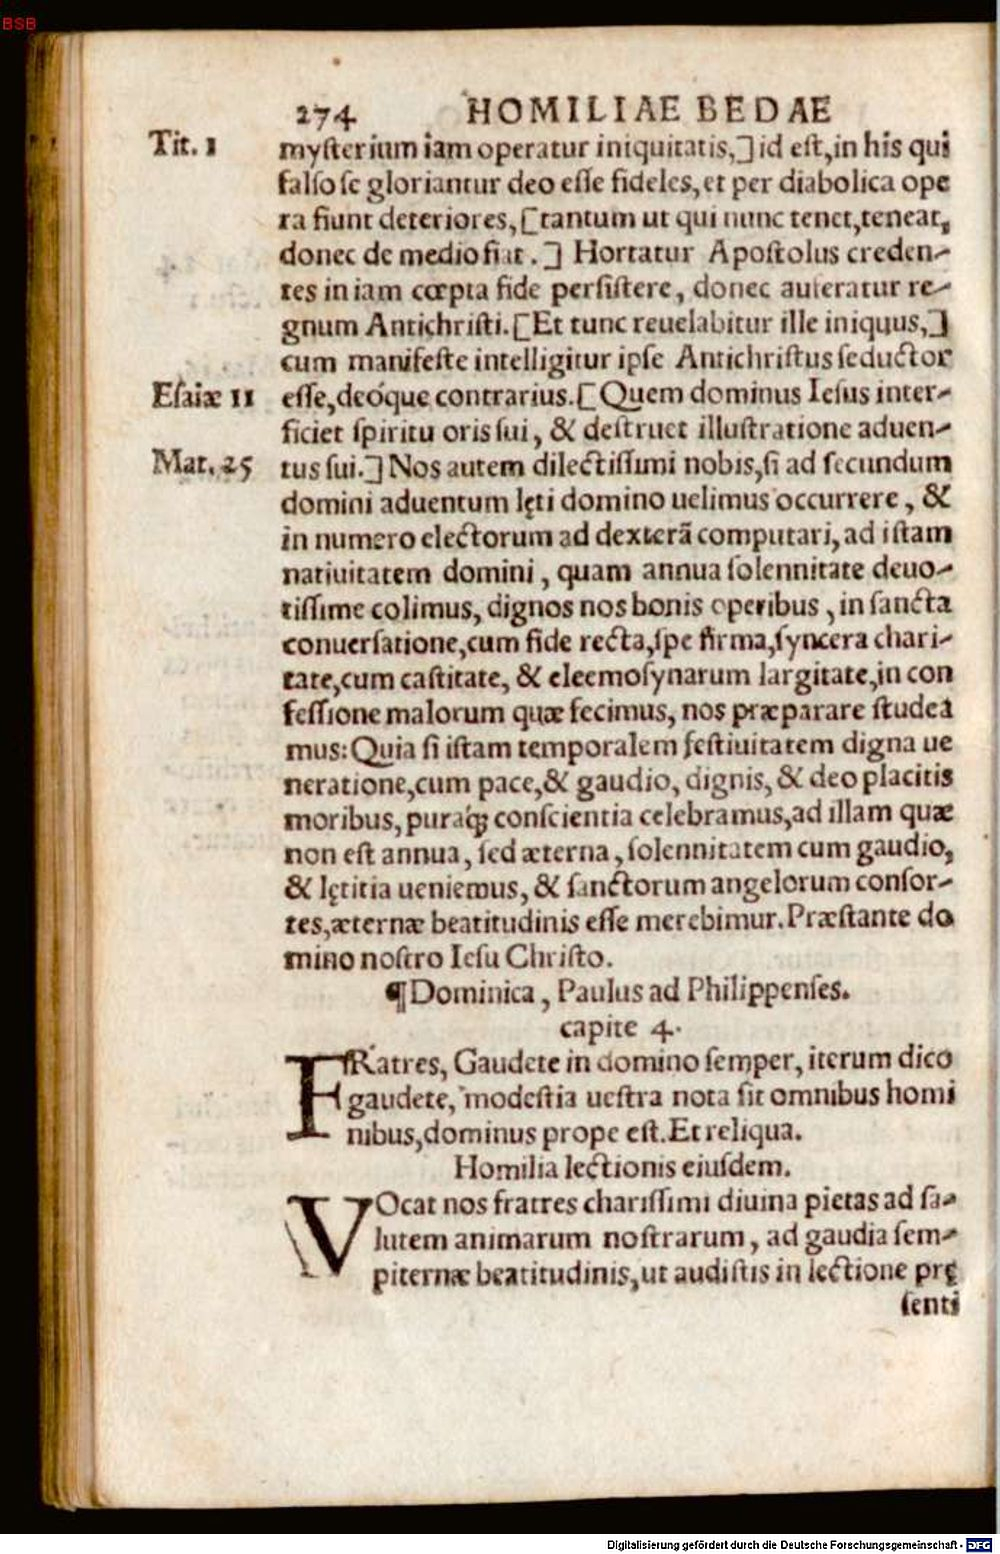 BSB
274 HOMILIAE BEDAE
Tit. 1 mysterium iam operatur iniquitatis,] id est, in his qui
falso se gloriantur deo esse fideles, et per diabolica ope
ra fiunt deteriores, [tantum ut qui nunc tenet, teneat,
donec de medio fiat.] Hortatur Apostolus creden-
tes in iam cœpta fide persistere, donec auferatur re-
gnum Antichristi. [Et tunc reuelabitur ille iniquus,]
cum manifeste intelligitur ipse Antichristus seductor
Esaiæ 11 esse, deóque contrarius. [Quem dominus Iesus inter-
ficiet spiritu oris sui, & destruet illustratione aduen-
Mat. 25 tus sui.] Nos autem dilectissimi nobis, si ad secundum
domini aduentum lęti domino uelimus occurrere, &
in numero electorum ad dexterã computari, ad istam
natiuitatem domini, quam annua solennitate deuo-
tissime colimus, dignos nos bonis operibus, in sancta
conuersatione, cum fide recta, spe firma, syncera chari-
tate, cum castitate, & eleemosynarum largitate, in con
fessione malorum quæ fecimus, nos præparare studea
mus: Quia si istam temporalem festiuitatem digna ue
neratione, cum pace, & gaudio, dignis, & deo placitis
moribus, puraq́; conscientia celebramus, ad illam quæ
non est annua, sed æterna, solennitatem cum gaudio,
& lętitia ueniemus, & sanctorum angelorum consor-
tes, æternæ beatitudinis esse merebimur. Præstante do
mino nostro Iesu Christo.
¶ Dominica, Paulus ad Philippenses.
capite 4.
FRatres, Gaudete in domino semper, iterum dico
gaudete, modestia uestra nota sit omnibus homi
nibus, dominus prope est. Et reliqua.
Homilia lectionis eiusdem.
VOcat nos fratres charissimi diuina pietas ad sa-
lutem animarum nostrarum, ad gaudia sem-
piternæ beatitudinis, ut audistis in lectione prę
senti
Digitalisierung gefördert durch die Deutsche Forschungsgemeinschaft - DFG